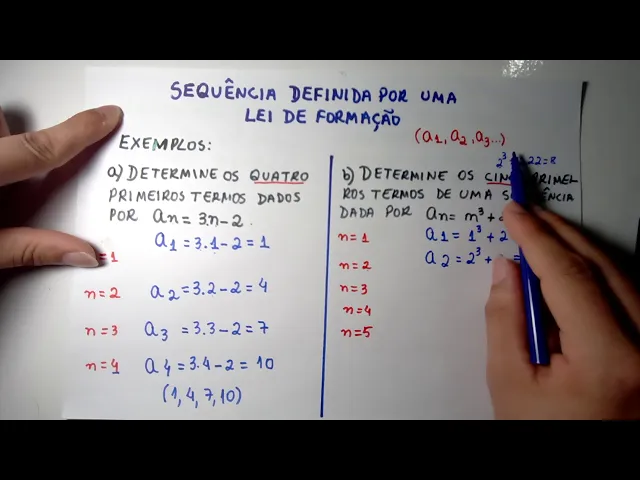 SEQUÊNCIA DEFINIDA POR UMA
LEI DE FORMAÇÃO
(a1, a2, a3...)
EXEMPLOS:
a) DETERMINE OS QUATRO
PRIMEIROS TERMOS DADOS
POR an = 3.n - 2.
n = 1
a1 = 3.1 - 2 = 1
n = 2
a2 = 3.2 - 2 = 4
n = 3
a3 = 3.3 - 2 = 7
n = 4
a4 = 3.4 - 2 = 10
(1, 4, 7, 10)
2³
22 = 8
b) DETERMINE OS
ROS TERMOS DE UMA
DADA POR an = n³ +
n = 1
a1 = 1³ + 2
n = 2
a2 = 2³ +
n = 3
n = 4
n = 5